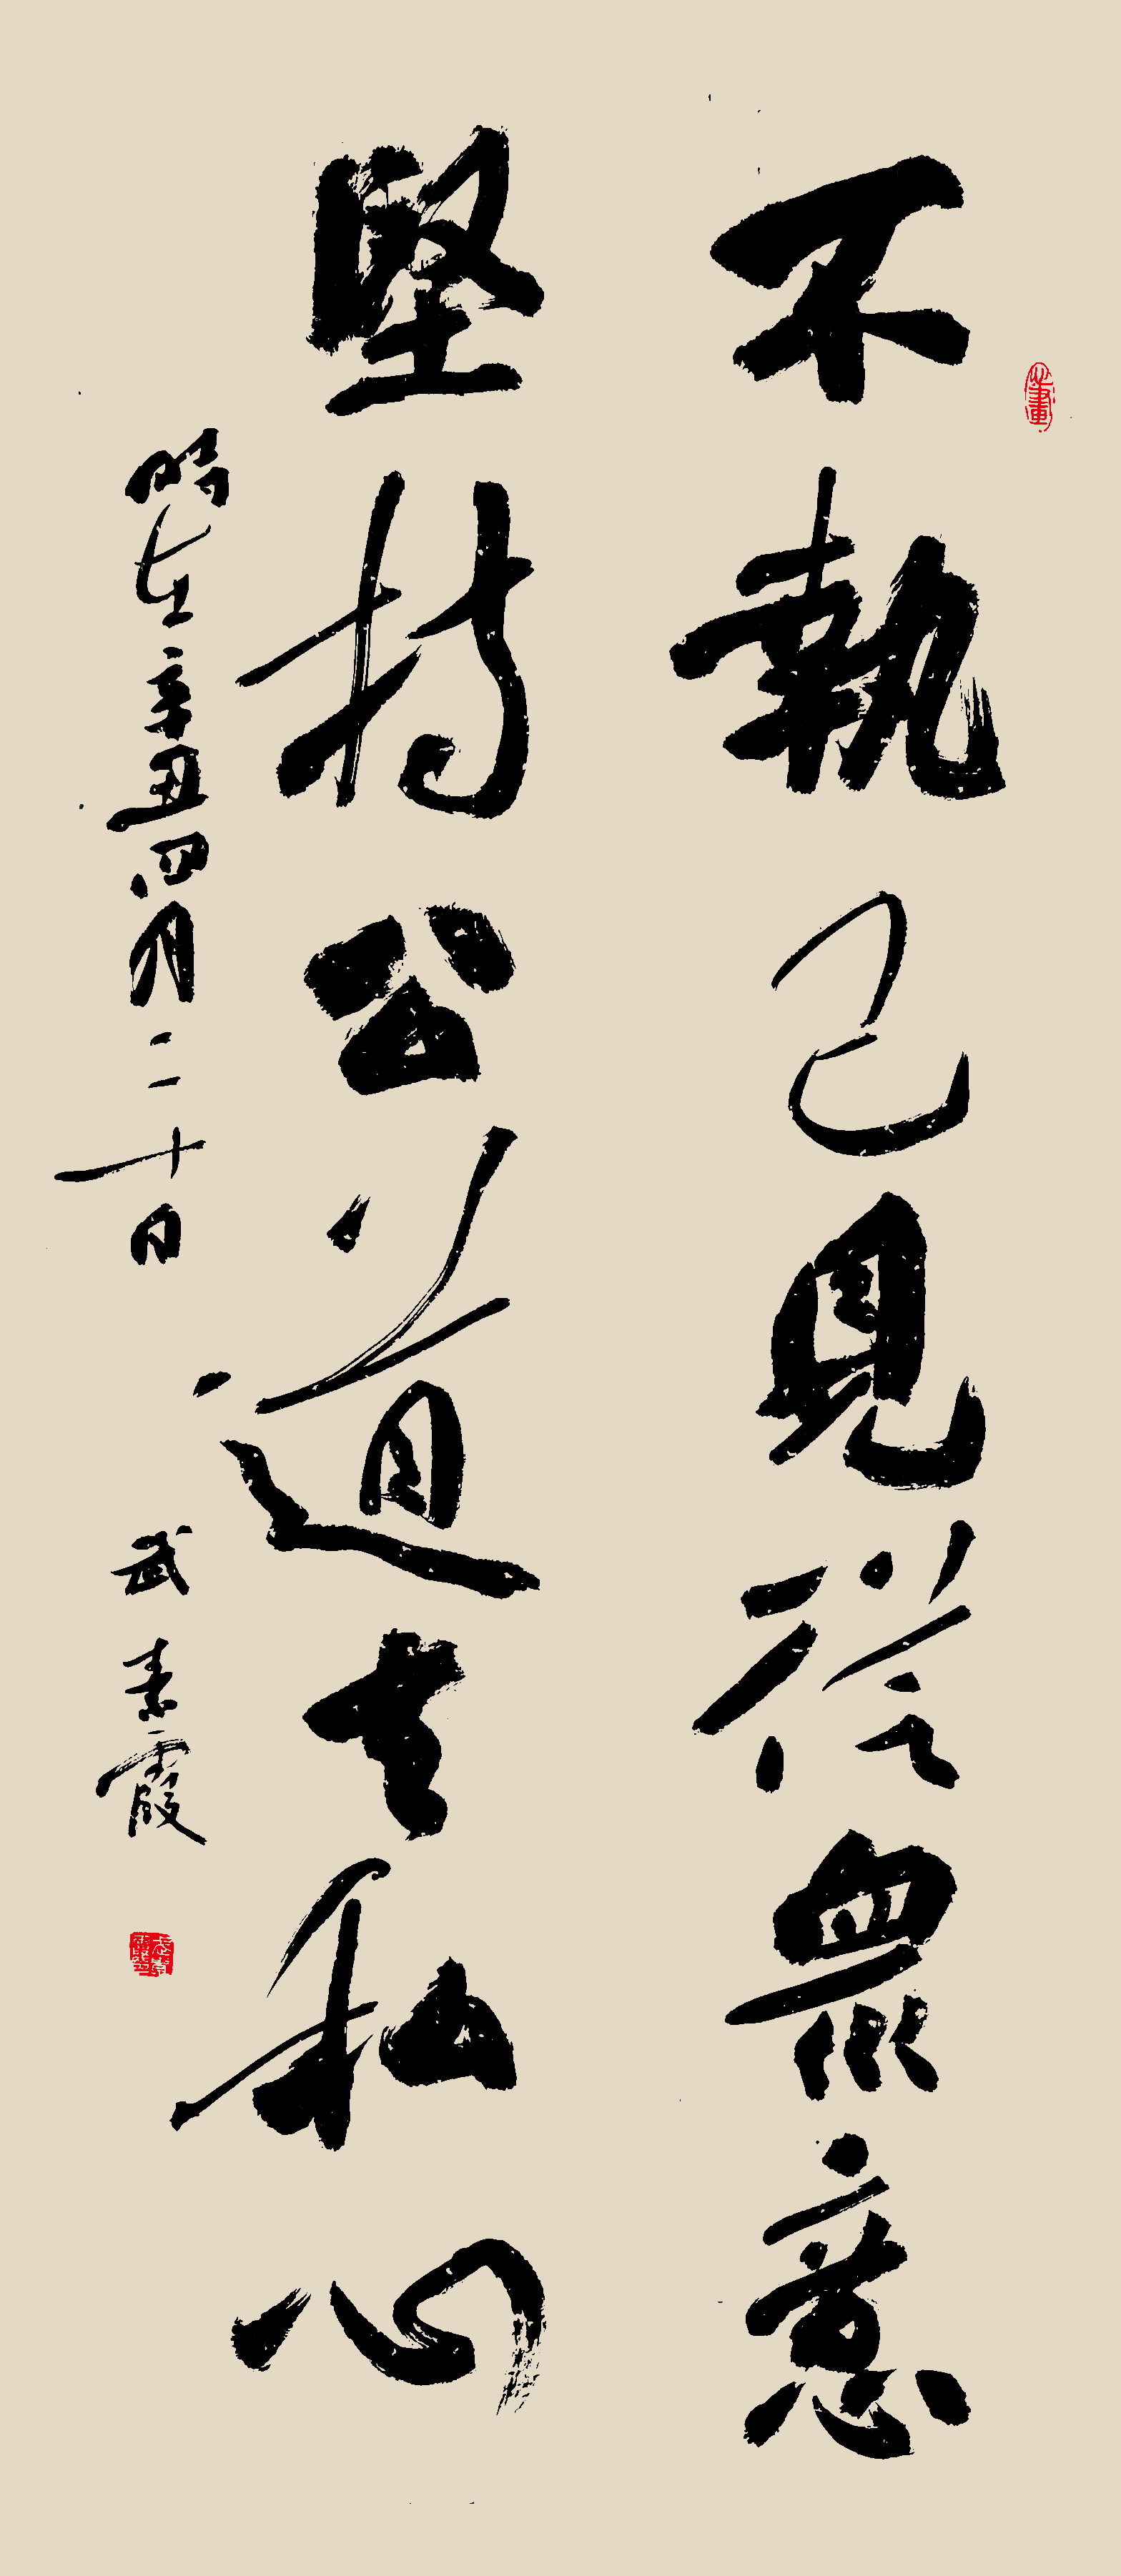 不執己見從眾意
堅持公道去私心
時在辛丑四月二十日
武素霞